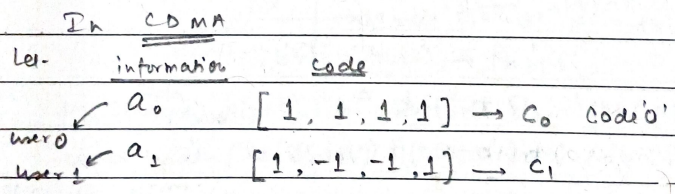 In CDMA
Let- information code
a₀ [1, 1, 1, 1] → C₀ code '0'
user 0
user 1 a₁ [1, -1, -1, 1] → C₁